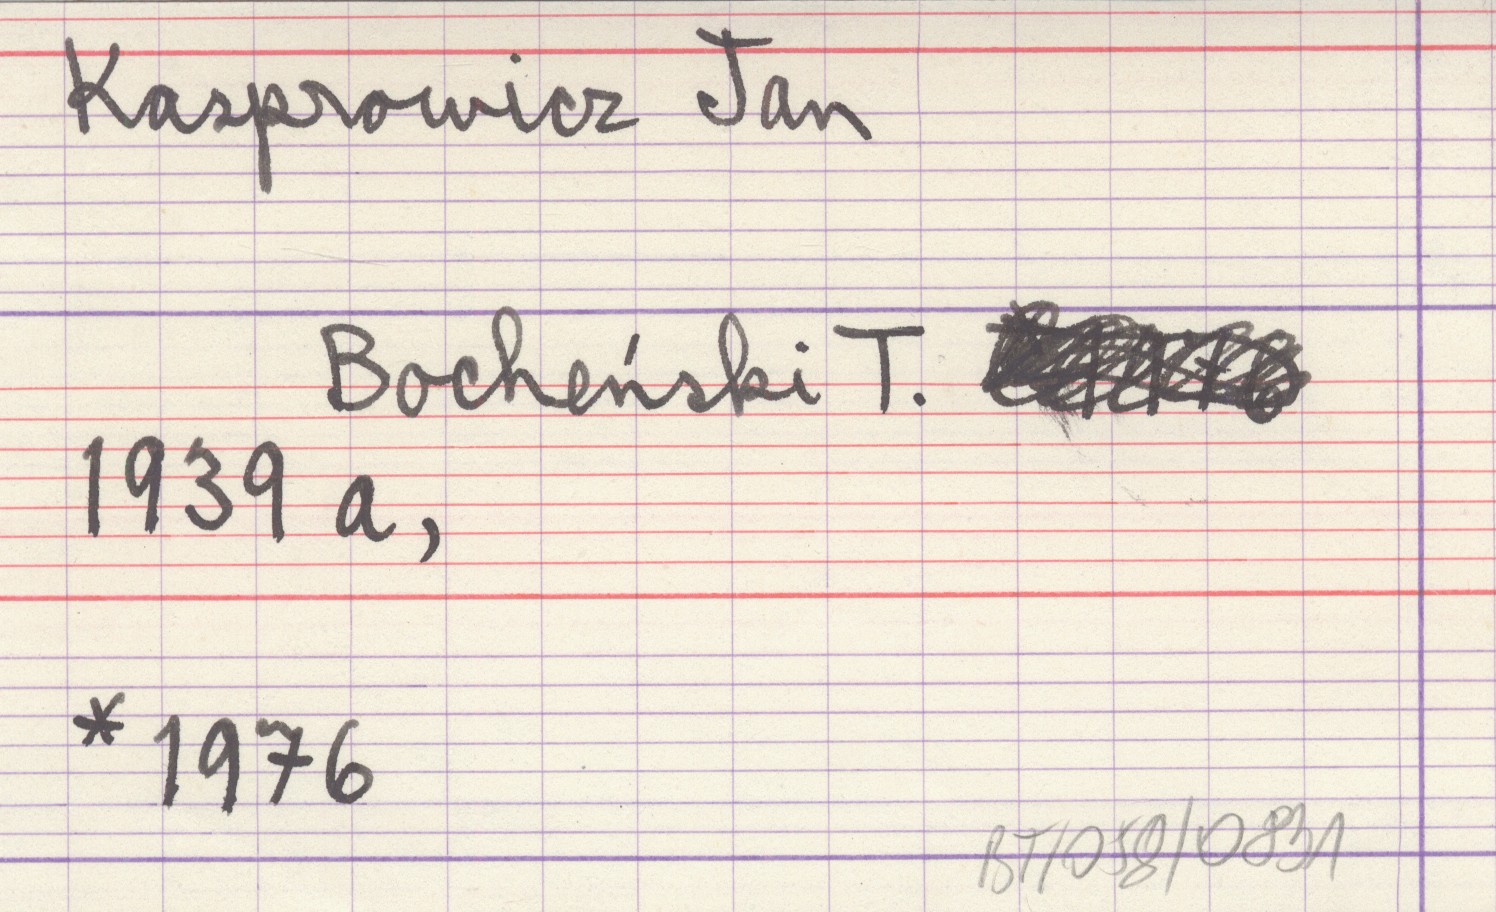 Kasprowicz Jan
Bocheński T.
1939 a,
* 1976
BT/058/0831